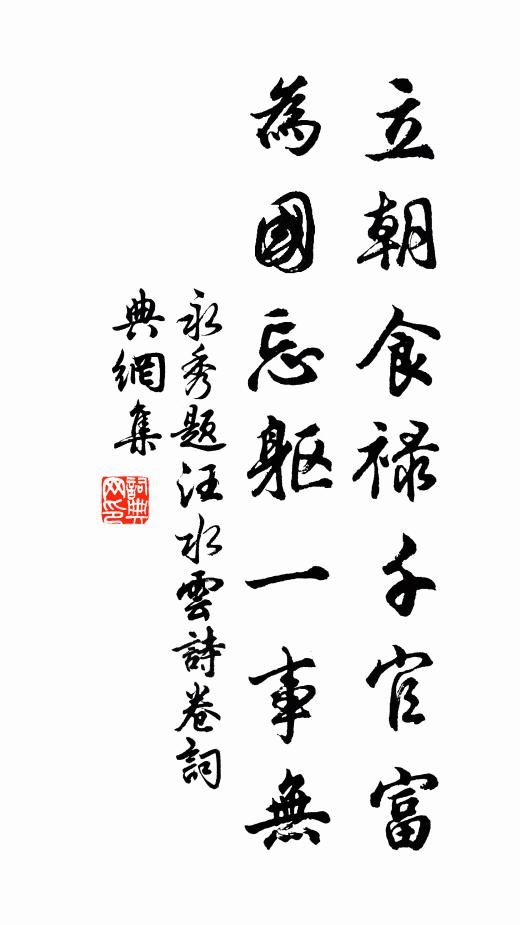 立朝食祿千官富
為國忘軀一事無
永秀題汪水雲詩卷詞
典網集
詞典
网印